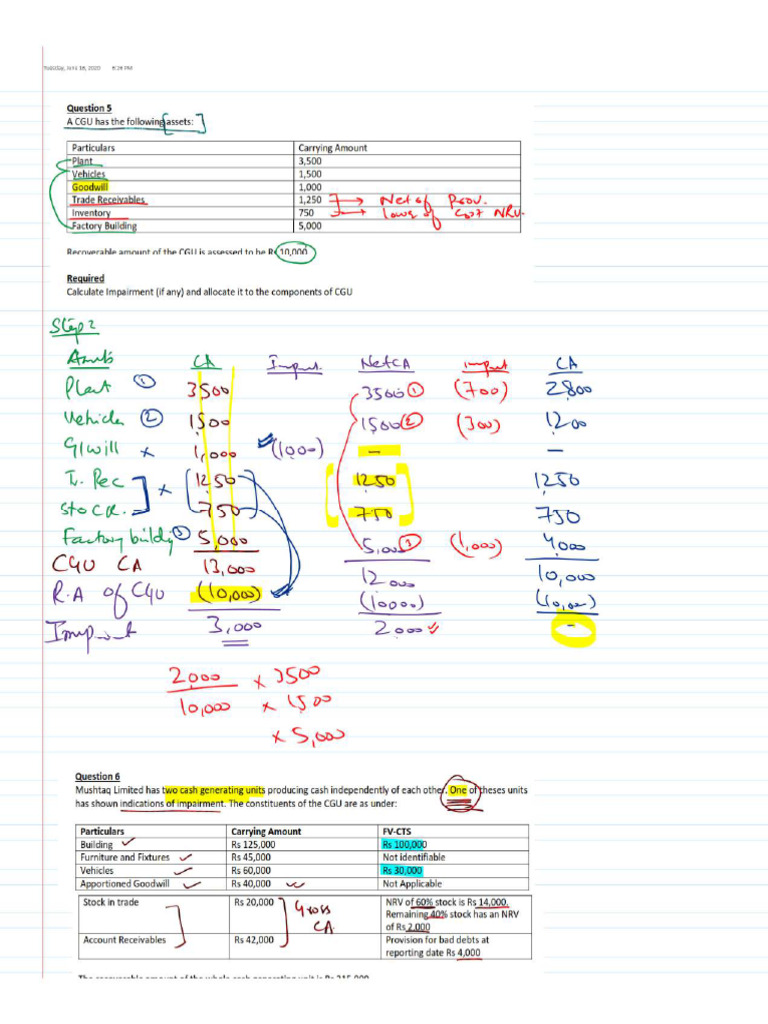 Tuesday, June 16, 2020 9:26 PM
Question 5
A CGU has the following assets:
Particulars Carrying Amount
Plant 3,500
Vehicles 1,500
Goodwill 1,000
Trade Receivables 1,250 → Net of Prov.
Inventory 750 → lower of Cost NRV.
Factory Building 5,000
Recoverable amount of the CGU is assessed to be Rs 10,000
Required
Calculate Impairment (if any) and allocate it to the components of CGU
Step 2
Assets CA Imput. Net CA imput CA
Plant ① 3500 3500 ① (700) 2800
Vehicles ② 1,500 1,500 ② (300) 1,200
G/will × 1,000 (1000) – –
Tr. Rec 1250 1250 1250
Stock. × 750 750 750
Factory buildg ③ 5,000 5,000 ③ (1,000) 4,000
CGU CA 13,000 12000 10,000
R.A of CGU (10,000) (10000) (10,000)
Impmt 3,000 2000 –
2000 × 3500
10,000 × 1,500
× 5,000
Question 6
Mushtaq Limited has two cash generating units producing cash independently of each other. One of theses units
has shown indications of impairment. The constituents of the CGU are as under:
Particulars Carrying Amount FV-CTS
Building Rs 125,000 Rs 100,000
Furniture and Fixtures Rs 45,000 Not identifiable
Vehicles Rs 60,000 Rs 30,000
Apportioned Goodwill Rs 40,000 Not Applicable
Stock in trade Rs 20,000 Gross CA NRV of 60% stock is Rs 14,000.
Remaining 40% stock has an NRV
of Rs 2,000
Account Receivables Rs 42,000 Provision for bad debts at
reporting date Rs 4,000
The recoverable amount of the whole cash generating unit is Rs 215,000